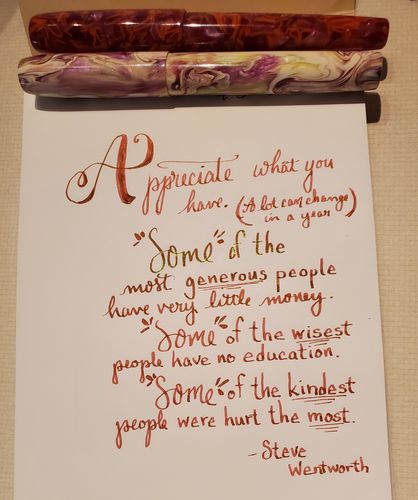 Appreciate what you
have. (A lot can change
in a year)
"Some" of the
most generous people
have very little money.
"Some" of the wisest
people have no education.
"Some" of the kindest
people were hurt the most.
- Steve
Wentworth